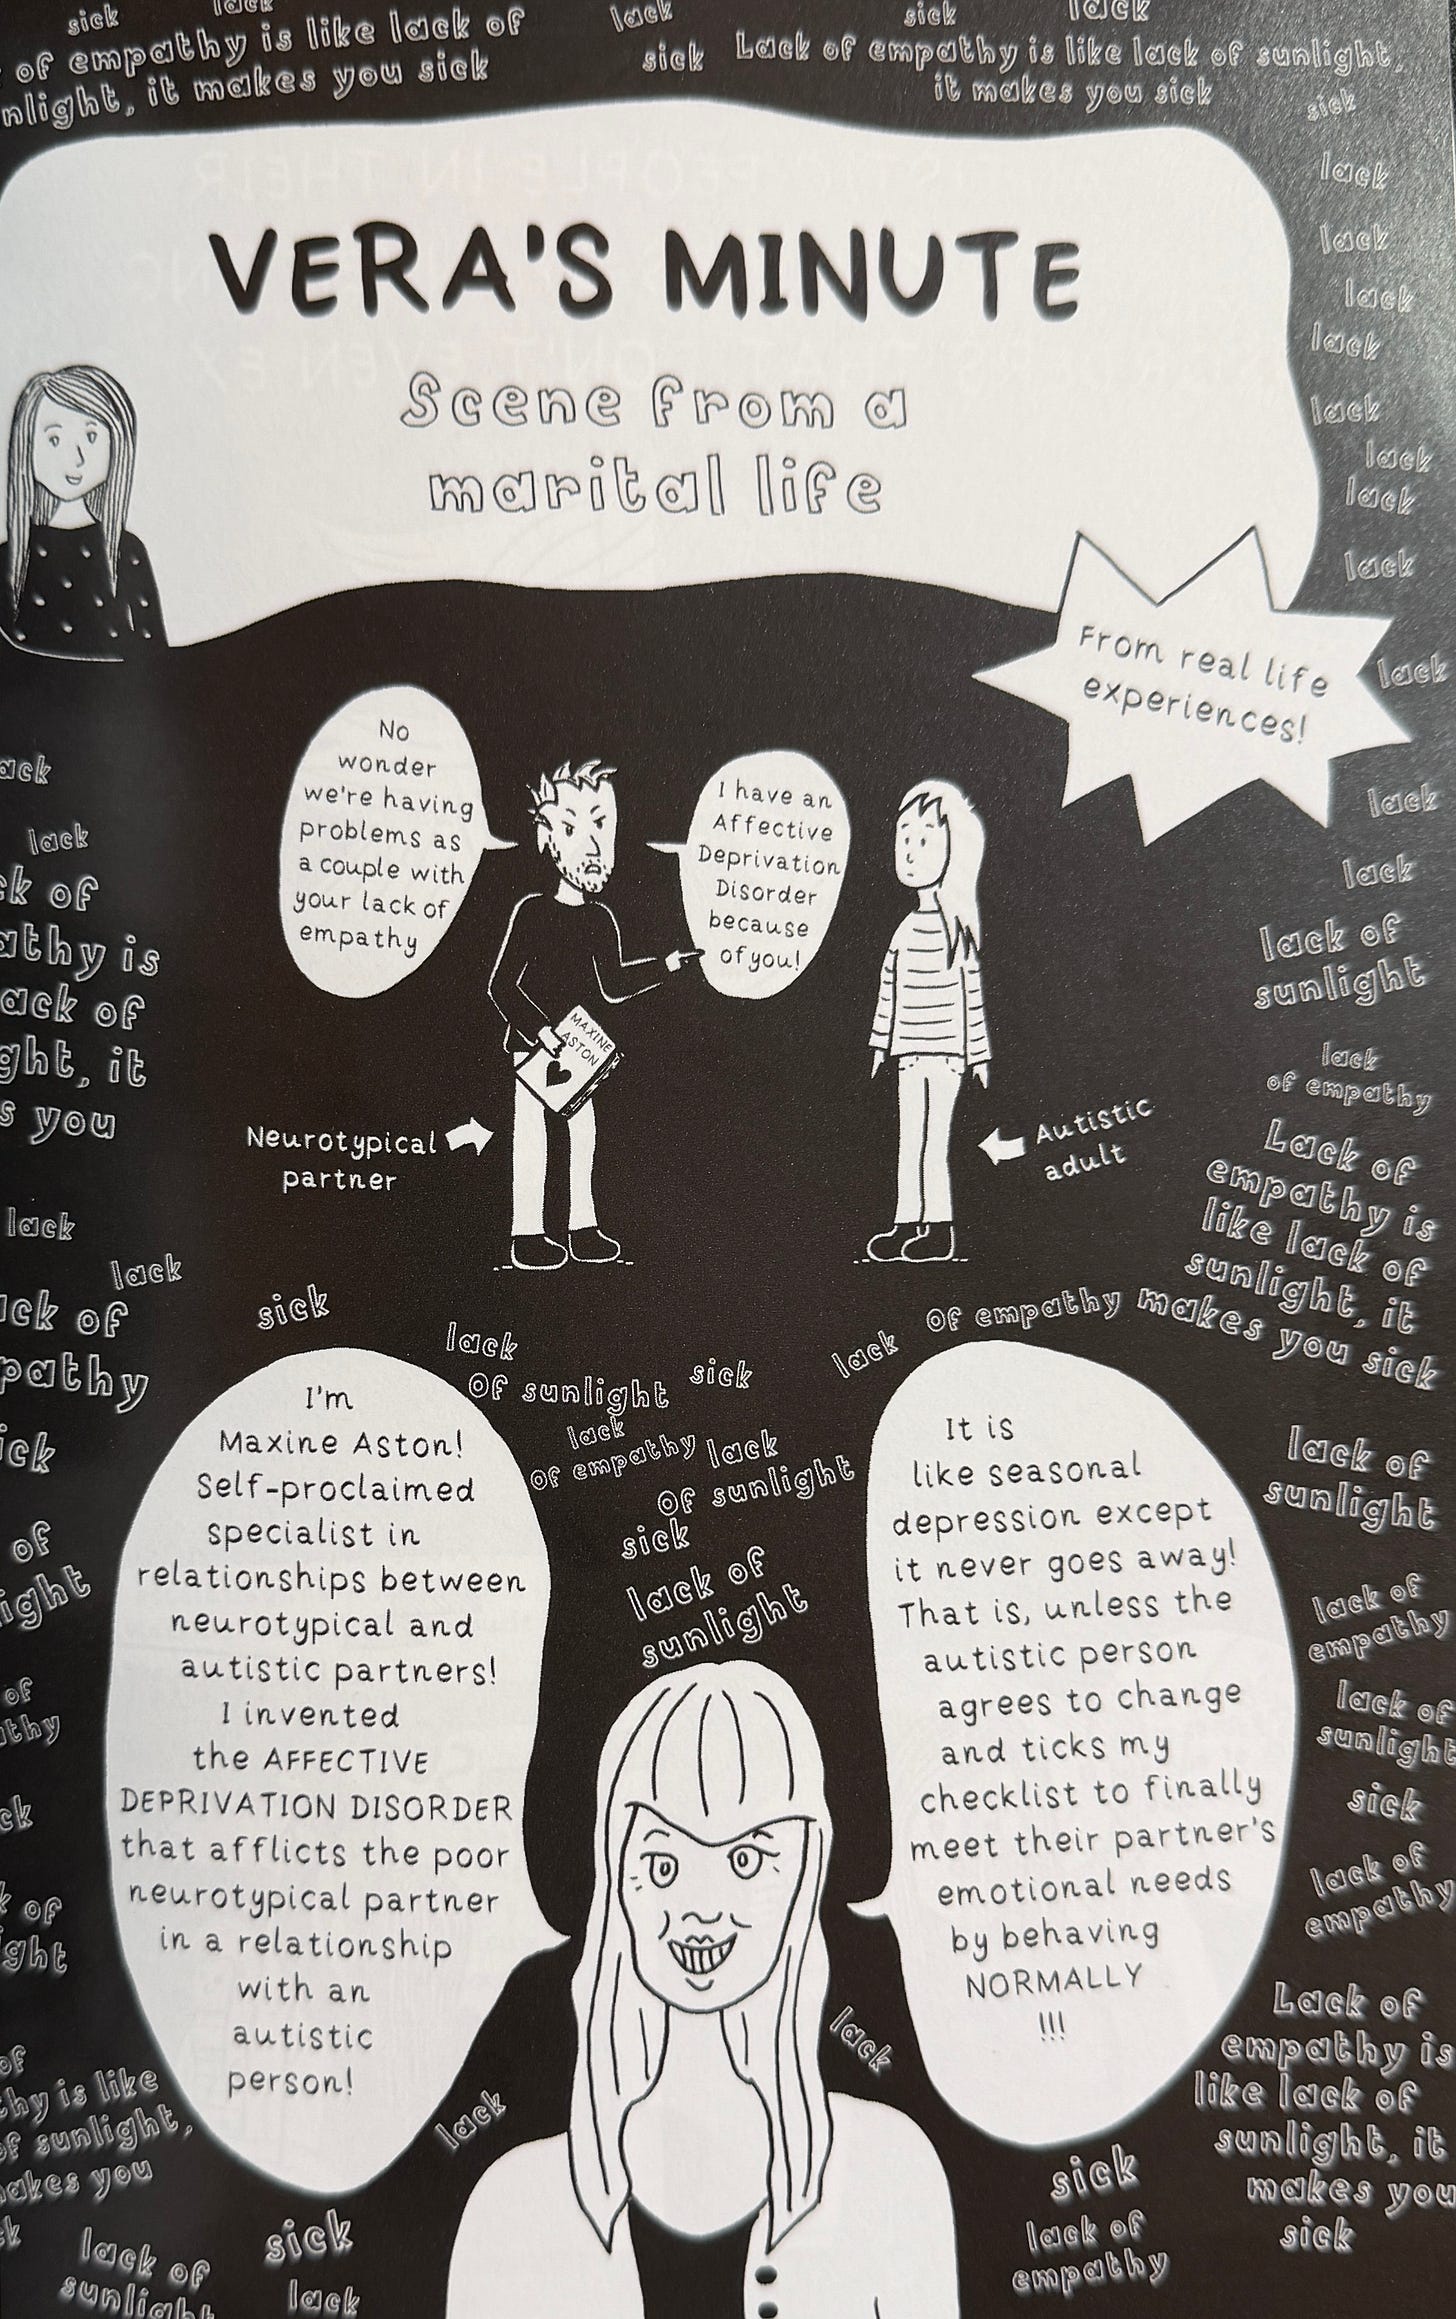 sick
lack
of empathy is like lack of
nlight, it makes you sick
lack
sick
sick
lack
Lack of empathy is like lack of sunlight,
it makes you sick
sick
lack
lack
lack
lack
lack
lack
lack
lack
VERA'S MINUTE
Scene from a
marital life
From real life
experiences!
lack
lack
lack
lack of
sunlight
lack
of empathy
Lack of
empathy is
like lack of
sunlight, it
makes you sick
ack
lack
ck of
athy is
ack of
ght, it
s you
lack
lack
ck of
pathy
ick
No
wonder
we're having
problems as
a couple with
your lack of
empathy
I have an
Affective
Deprivation
Disorder
because
of you!
MAXINE
ASTON
Neurotypical
partner
Autistic
adult
sick
lack
of sunlight
sick
lack
of empathy
lack
of empathy
lack
of sunlight
sick
lack of
sunlight
I'm
Maxine Aston!
Self-proclaimed
specialist in
relationships between
neurotypical and
autistic partners!
I invented
the AFFECTIVE
DEPRIVATION DISORDER
that afflicts the poor
neurotypical partner
in a relationship
with an
autistic
person!
It is
like seasonal
depression except
it never goes away!
That is, unless the
autistic person
agrees to change
and ticks my
checklist to finally
meet their partner's
emotional needs
by behaving
NORMALLY
!!!
lack of
sunlight
lack of
empathy
lack of
sunlight
sick
lack of
empathy
Lack of
empathy is
like lack of
sunlight, it
makes you
sick
of
ight
of
thy
ck
of
ght
of
thy is like
of sunlight,
akes you
k
lack of
sunlight
sick
lack
lack
lack
sick
lack of
empathy